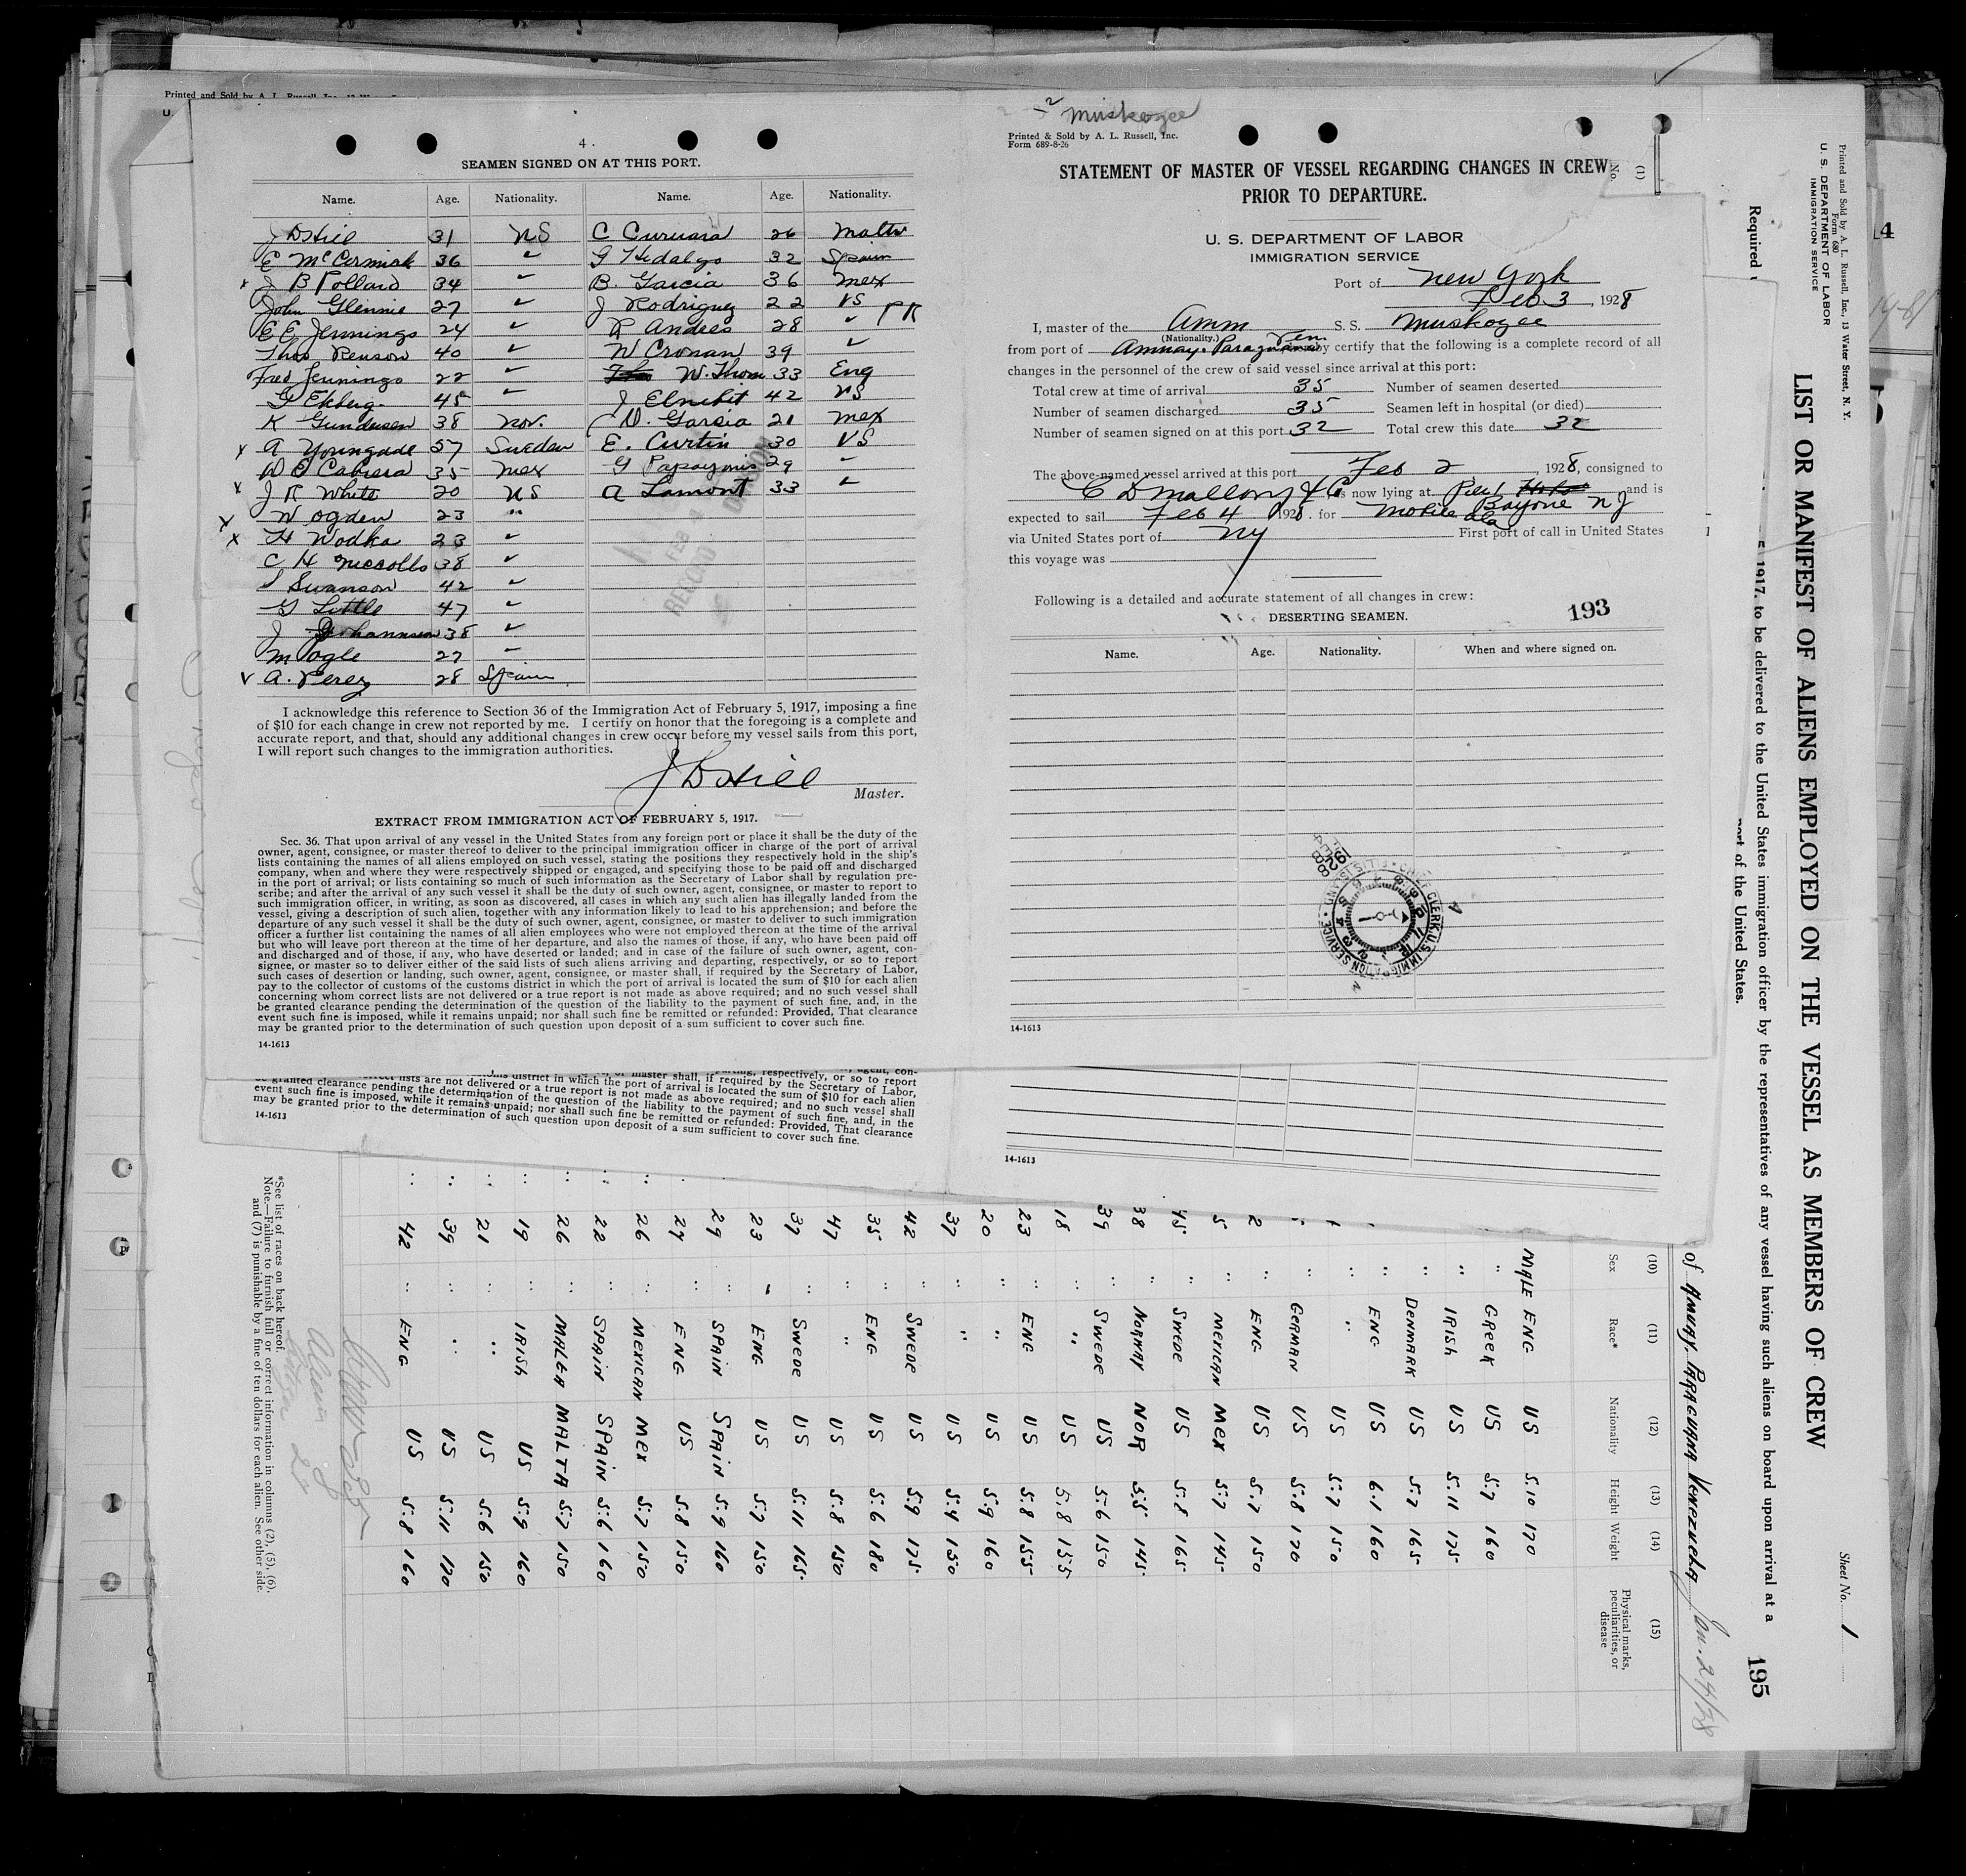 Printed and Sold by A. L. Russell, Inc.
4.
SEAMEN SIGNED ON AT THIS PORT.
Name. Age. Nationality. Name. Age. Nationality.
J D Hill 31 US C Curuana 26 Malta
E McCormick 36 " G Hidalgo 32 Spain
x J B Pollard 34 " B. Garcia 36 Mex
John Glennie 27 " J Rodriguez 22 US
E E Jennings 24 " R Andres 28 " P R
Theo Renson 40 " W Cronan 39 "
Fred Jennings 22 " W. Thom 33 Eng
G Ekberg 45 " J Elnihit 42 US
K Gundersen 38 Nor. D. Garcia 21 Mex
x A Youngade 57 Sweden E. Curtin 30 US
W E Cabrera 35 Mex G Papazonis 29 "
x J R White 20 US A Lamont 33 "
x W Ogden 23 "
x H Wodka 23 "
C H 38 "
S Swanson 42 "
G Little 47 "
J Johannsen 38 "
M Ogle 27 "
v A. Perez 28 Spain
I acknowledge this reference to Section 36 of the Immigration Act of February 5, 1917, imposing a fine
of $10 for each change in crew not reported by me. I certify on honor that the foregoing is a complete and
accurate report, and that, should any additional changes in crew occur before my vessel sails from this port,
I will report such changes to the immigration authorities.
J D Hill
Master.
EXTRACT FROM IMMIGRATION ACT OF FEBRUARY 5, 1917.
Sec. 36. That upon arrival of any vessel in the United States from any foreign port or place it shall be the duty of the
owner, agent, consignee, or master thereof to deliver to the principal immigration officer in charge of the port of arrival
lists containing the names of all aliens employed on such vessel, stating the positions they respectively hold in the ship's
company, when and where they were respectively shipped or engaged, and specifying those to be paid off and discharged
in the port of arrival; or lists containing so much of such information as the Secretary of Labor shall by regulation pre-
scribe; and after the arrival of any such vessel it shall be the duty of such owner, agent, consignee, or master to report to
such immigration officer, in writing, as soon as discovered, all cases in which any such alien has illegally landed from the
vessel, giving a description of such alien, together with any information likely to lead to his apprehension; and before the
departure of any such vessel it shall be the duty of such owner, agent, consignee, or master to deliver to such immigration
officer a further list containing the names of all alien employees who were not employed thereon at the time of the arrival
but who will leave port thereon at the time of her departure, and also the names of those, if any, who have been paid off
and discharged and of those, if any, who have deserted or landed; and in case of the failure of such owner, agent, con-
signee, or master so to deliver either of the said lists of such aliens arriving and departing, respectively, or so to report
such cases of desertion or landing, such owner, agent, consignee, or master shall, if required by the Secretary of Labor,
pay to the collector of customs of the customs district in which the port of arrival is located the sum of $10 for each alien
concerning whom correct lists are not delivered or a true report is not made as above required; and no such vessel shall
be granted clearance pending the determination of the question of the liability to the payment of such fine, and, in the
event such fine is imposed, while it remains unpaid; nor shall such fine be remitted or refunded: Provided, That clearance
may be granted prior to the determination of such question upon deposit of a sum sufficient to cover such fine.
14-1613
Muskogee
Printed & Sold by A. L. Russell, Inc.
Form 689-8-26
STATEMENT OF MASTER OF VESSEL REGARDING CHANGES IN CREW
PRIOR TO DEPARTURE.
U. S. DEPARTMENT OF LABOR
IMMIGRATION SERVICE
Port of New York
Feb 3, 1928
I, master of the Amm S. S. Muskogee
(Nationality.)
from port of Amuay. Paraguana Ven hereby certify that the following is a complete record of all
changes in the personnel of the crew of said vessel since arrival at this port:
Total crew at time of arrival 35 Number of seamen deserted
Number of seamen discharged 35 Seamen left in hospital (or died)
Number of seamen signed on at this port 32 Total crew this date 32
The above-named vessel arrived at this port Feb 2, 1928, consigned to
C D Mallory & Co is now lying at Pier 1 Bayonne N J and is
expected to sail Feb 4 1928. for Mobile Ala
via United States port of NY First port of call in United States
this voyage was
Following is a detailed and accurate statement of all changes in crew:
DESERTING SEAMEN. 193
Name. Age. Nationality. When and where signed on.
CHIEF CLERK, U.S. IMMIGRATION SERVICE · ELLIS ISLAND ·
FEB 4 1928
14-1613
RECORD DIVISION
FEB
respectively, or so to report
customs district in which the port of arrival is located the sum of $10 for each alien
lists are not delivered or a true report is not made as above required; and no such vessel shall
be granted clearance pending the determination of the question of the liability to the payment of such fine, and, in the
event such fine is imposed, while it remains unpaid; nor shall such fine be remitted or refunded: Provided, That clearance
may be granted prior to the determination of such question upon deposit of a sum sufficient to cover such fine.
14-1613
14-1613
Printed and Sold by A. L. Russell, Inc., 13 Water Street, N. Y.
Form 680
U. S. DEPARTMENT OF LABOR
IMMIGRATION SERVICE
Sheet No. 1
LIST OR MANIFEST OF ALIENS EMPLOYED ON THE VESSEL AS MEMBERS OF CREW
1917, to be delivered to the United States immigration officer by the representatives of any vessel having such aliens on board upon arrival at a
port of the United States.
Required
195
of AMUAY. PARAGUANA VENEZUELA Jan. 24/28
(1) (10) (11) (12) (13) (14) (15)
No. Sex Race* Nationality Height Weight Physical marks, peculiarities, or disease
MALE ENG US 5.10 170
" GREEK US 5.7 160
" IRISH US 5.11 175
" DENMARK US 5.7 165
" ENG US 6.1 160
" " US 5.7 150
" GERMAN US 5.8 170
2 " ENG US 5.7 150
5 " MEXICAN MEX 5.7 145
45 " SWEDE US 5.8 165
38 " NORWAY NOR 5.5 145
39 " SWEDE US 5.6 150
18 " " US 5.8 155
23 " ENG US 5.8 155
20 " " US 5.9 160
37 " " US 5.4 150
42 " SWEDE US 5.9 175
35 " ENG US 5.6 180
47 " " US 5.8 150
37 " SWEDE US 5.11 165
23 " ENG US 5.7 150
29 " SPAIN SPAIN 5.9 160
27 " ENG US 5.8 150
26 " MEXICAN MEX 5.7 150
22 " SPAIN SPAIN 5.6 160
26 " MALTA MALTA 5.7 150
19 " IRISH US 5.9 160
21 " " US 5.6 150
39 " " US 5.11 170
42 " ENG US 5.8 160
*See list of races on back hereof.
Note.—Failure to furnish full or correct information in columns (2), (5), (6),
and (7) is punishable by a fine of ten dollars for each alien. See other side.